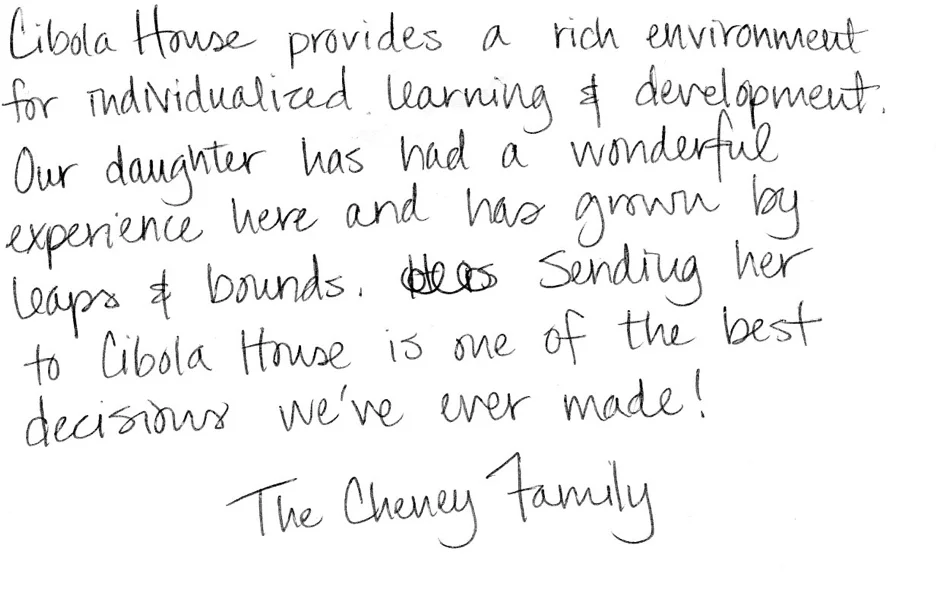 Cibola House provides a rich environment
for individualized learning & development.
Our daughter has had a wonderful
experience here and has grown by
leaps & bounds. Sending her
to Cibola House is one of the best
decisions we've ever made!
The Cheney Family